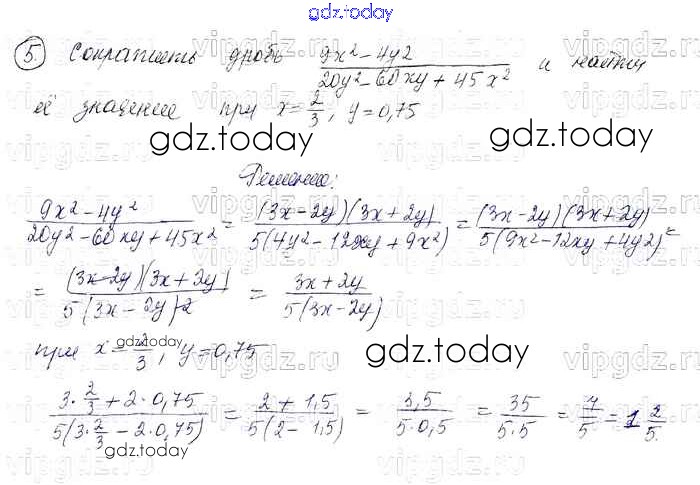 gdz.today
5. Сократить дробь (9x² - 4y²)/(20y² - 60xy + 45x²) и найти
её значение при x = 2/3, y = 0,75
gdz.today gdz.today
Решение:
(9x² - 4y²)/(20y² - 60xy + 45x²) = ((3x - 2y)(3x + 2y))/(5(4y² - 12xy + 9x²)) = ((3x - 2y)(3x + 2y))/(5(9x² - 12xy + 4y²)) =
= ((3x - 2y)(3x + 2y))/(5(3x - 2y)²) = (3x + 2y)/(5(3x - 2y))
gdz.today gdz.today
при x = 2/3, y = 0,75
(3·2/3 + 2·0,75)/(5(3·2/3 - 2·0,75)) = (2 + 1,5)/(5(2 - 1,5)) = 3,5/(5·0,5) = 35/(5·5) = 7/5 = 1 2/5.
gdz.today gdz.today
vipgdz.ru